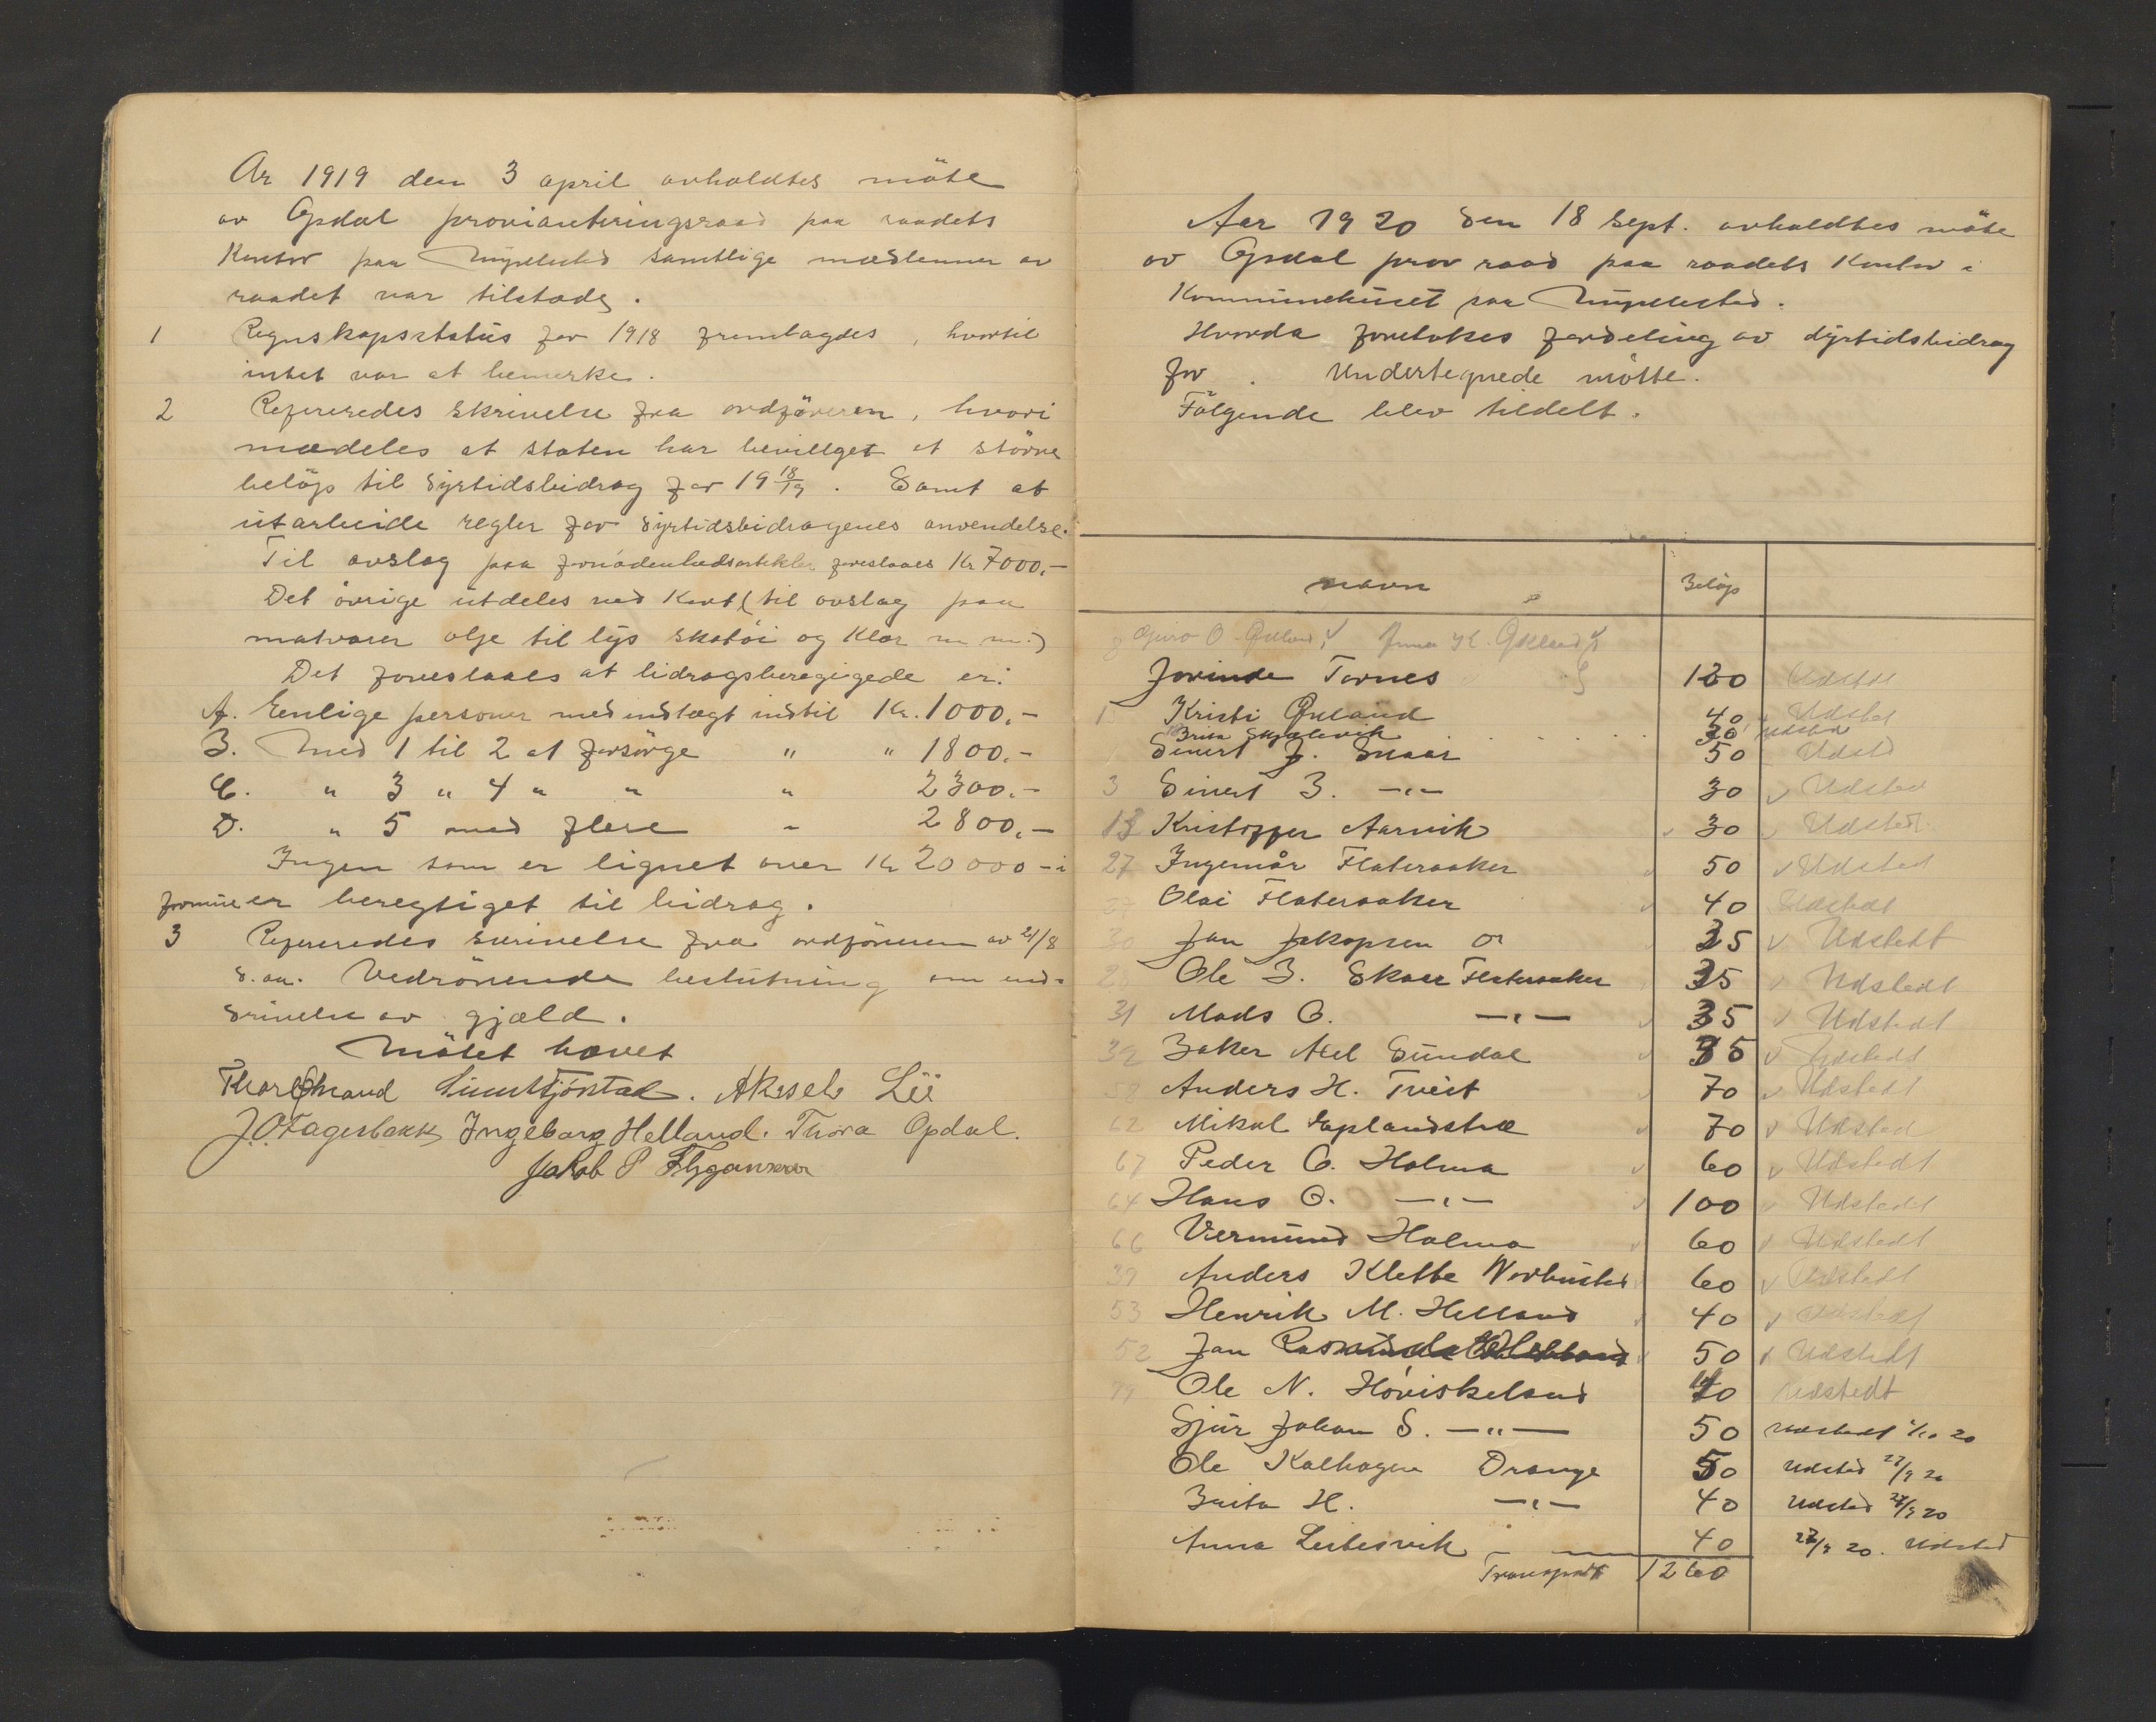 År 1919 den 3 april avholdtes möte
av Opdal provianteringsraad paa raadets
Kontor paa samtlige medlemmer av
raadet var tilstæde.
1 Regnskapsstatus for 1918 fremlagdes, hvortil
intet var at bemerke.
2 Refereredes skrivelse fra ordföreren, hvori
meddeles at staten har bevillget et större
belöp til dyrtidsbidrag for 19 18/19. Samt at
utarbeide regler for dyrtidsbidragenes anvendelse.
Til avslag paa fornödenhedsartikler foreslaaes Kr 7000,-
Det övrige utdeles ved Kort (til avslag paa
matvarer olje til lys skotöi og Klær m m.)
Det foreslaaes at bidragsberegigede er:
A. Enlige personer med indtægt indtil Kr. 1000,-
B. Med 1 til 2 at forsörge " " 1800,-
C. " 3 " 4 " " " 2300,-
D. " 5 med flere " 2800,-
Ingen som er lignet over Kr 20000 - i
formue er beregtiget til bidrag.
3 Refereredes skrivelse fra ordföreren av 21/8
d.aa. Vedrörende beslutning om ind-
drivelse av gjæld.
Mötet hævet
Aksel Lie
J.O. Fagerbakk Ingeborg Helland. Thora Opdal.
Jakob P Flygansvær
Aar 1920 den 18 sept. avholdtes möte
av Opdal prov raad paa raadets Kontor i
Kommunehuset paa
Hvorda foretokes fordeling av dyrtidsbidrag
for . Undertegnede mötte.
Fölgende blev tildelt.
navn Belöp
Guro O. Økland Anna K. Økland
Jorinde Tornes
Kristi Økland 40 Udsted
Brita Skjælevik 30 Udsted
Sivert J. 50 Udsted
3 Sivert B. -"- 30 v Udsted
13 Kristoffer Aarvik v 30 v Udstedt
27 Ingemår Flateraaker v 50 v Udsted
Olai Flateraaker v 40 Udstedt
30 Jan Jakopsen 35 v Udstedt
Ole B. Skaar Flateraaker 35 v Udstedt
31 Mads O. -"- v 35 v Udstedt
32 Baker Axel Sundal v v Udstedt
58 Anders H. Tveit v 70 v Udstedt
62 Mikal v 70 v Udsted
67 Peder O. Holma v 60 v Udstedt
64 Hans O. -"- v 100 v Udstedt
66 Vermund Holma v 60 v Udstedt
39 Anders Klette Nordhusted 60 v Udstedt
53 Henrik M. Helland v 40 v Udstedt
52 Jan v 50 v Udstedt
Ole N. Höviskeland Udstedt
Sjur Johan S. -"- 50 Udstedt 20
Ole Kalhagen Drange 50 Udsted 27/9 20
Brita H. -"- 40 Udsted 27/9 20
Anna Leitesvik 40 27/9 20. Udsted
Transport 1260